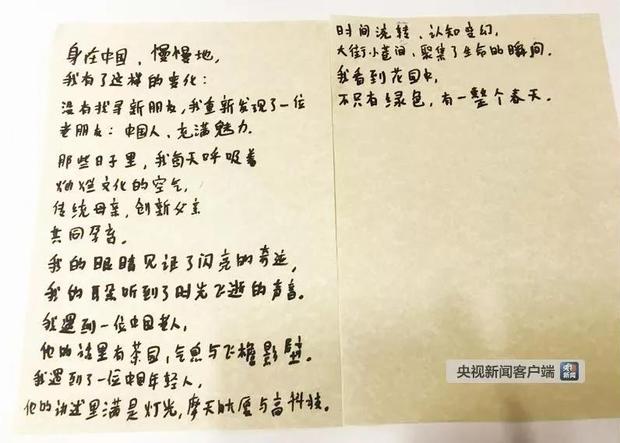 身在中国，慢慢地，
我有了这样的变化：
没有找寻新朋友，我重新发现了一位
老朋友：中国人、充满魅力.
那些日子里，我每天呼吸着
灿烂文化的空气，
传统母亲，创新父亲
共同孕育.
我的眼睛见证了闪亮的奇迹，
我的耳朵听到了时光飞逝的声音.
我遇到一位中国老人，
他的话里有茶园，气息与飞檐影壁.
我遇到了一位中国年轻人，
他的讲述里满是灯光，摩天大厦与高科技.
时间流转、认知变幻，
大街小巷间、聚集了生命的瞬间.
我看到花园里，
不只有绿色，有一整个春天.
央视新闻客户端
央视
新闻